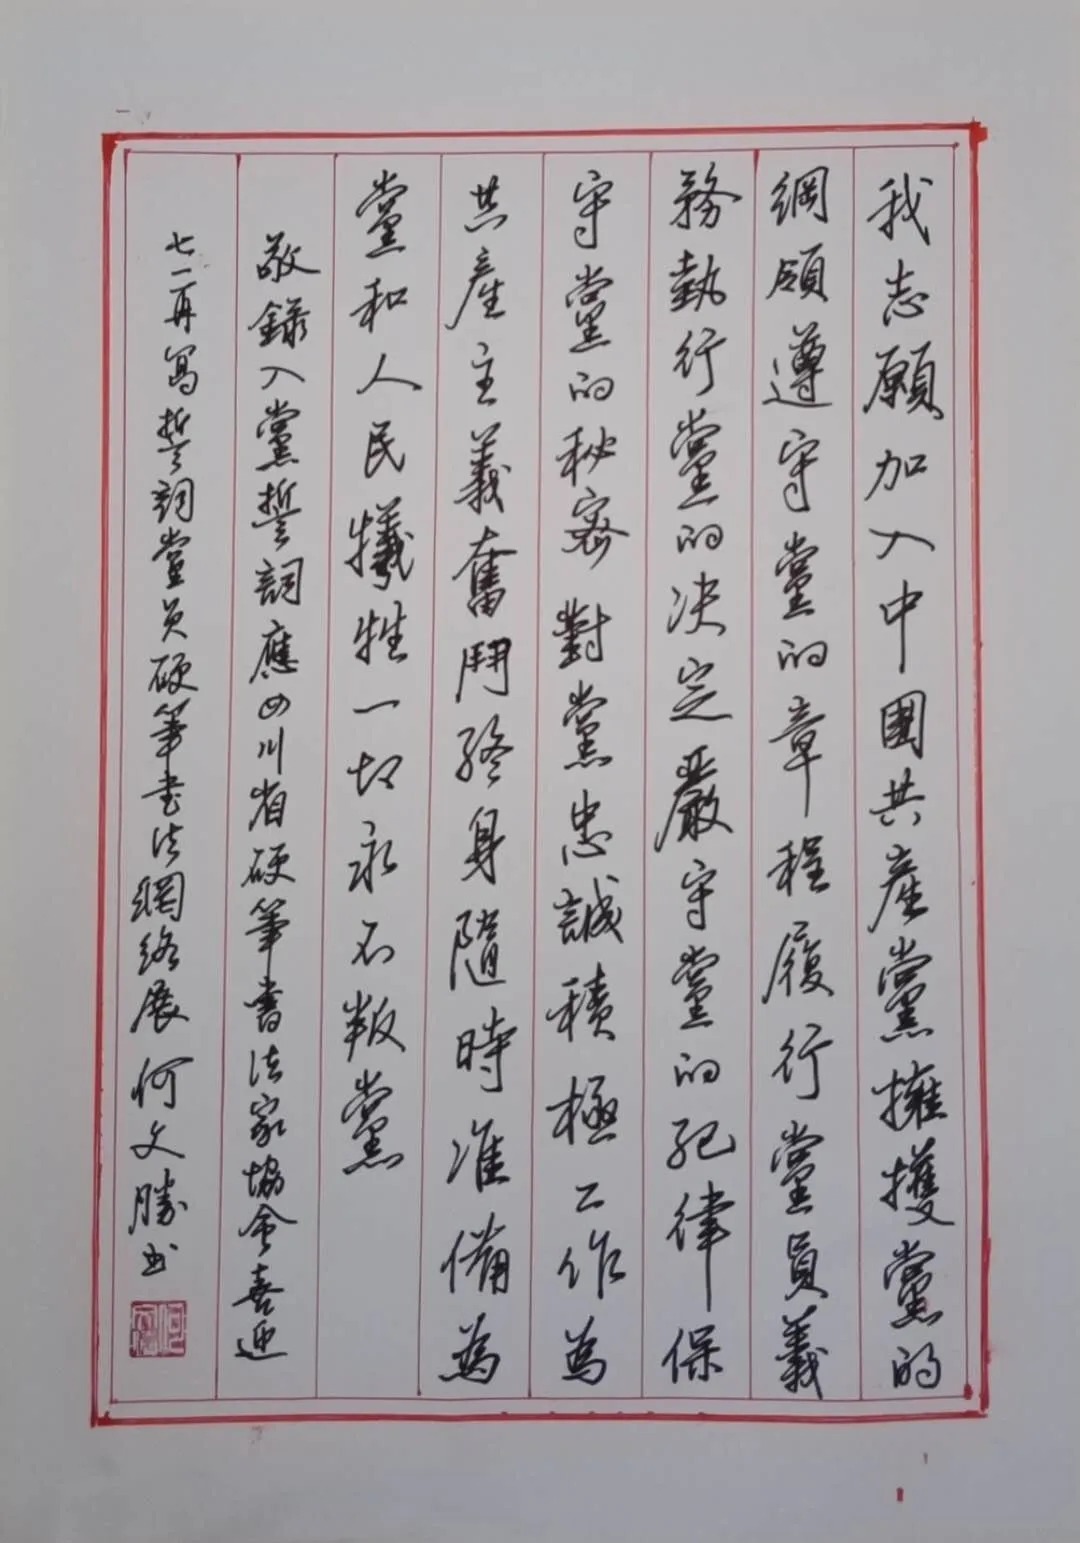 我志願加入中國共產黨擁護黨的
綱領遵守黨的章程履行黨員義
務執行黨的决定嚴守黨的紀律保
守黨的秘密對黨忠誠積極工作為
共產主義奮鬥終身隨時准備為
黨和人民犧牲一切永不叛黨
敬錄入黨誓詞應四川省硬筆書法家協會喜迎
七一再寫誓詞黨員硬筆書法網絡展何文勝书